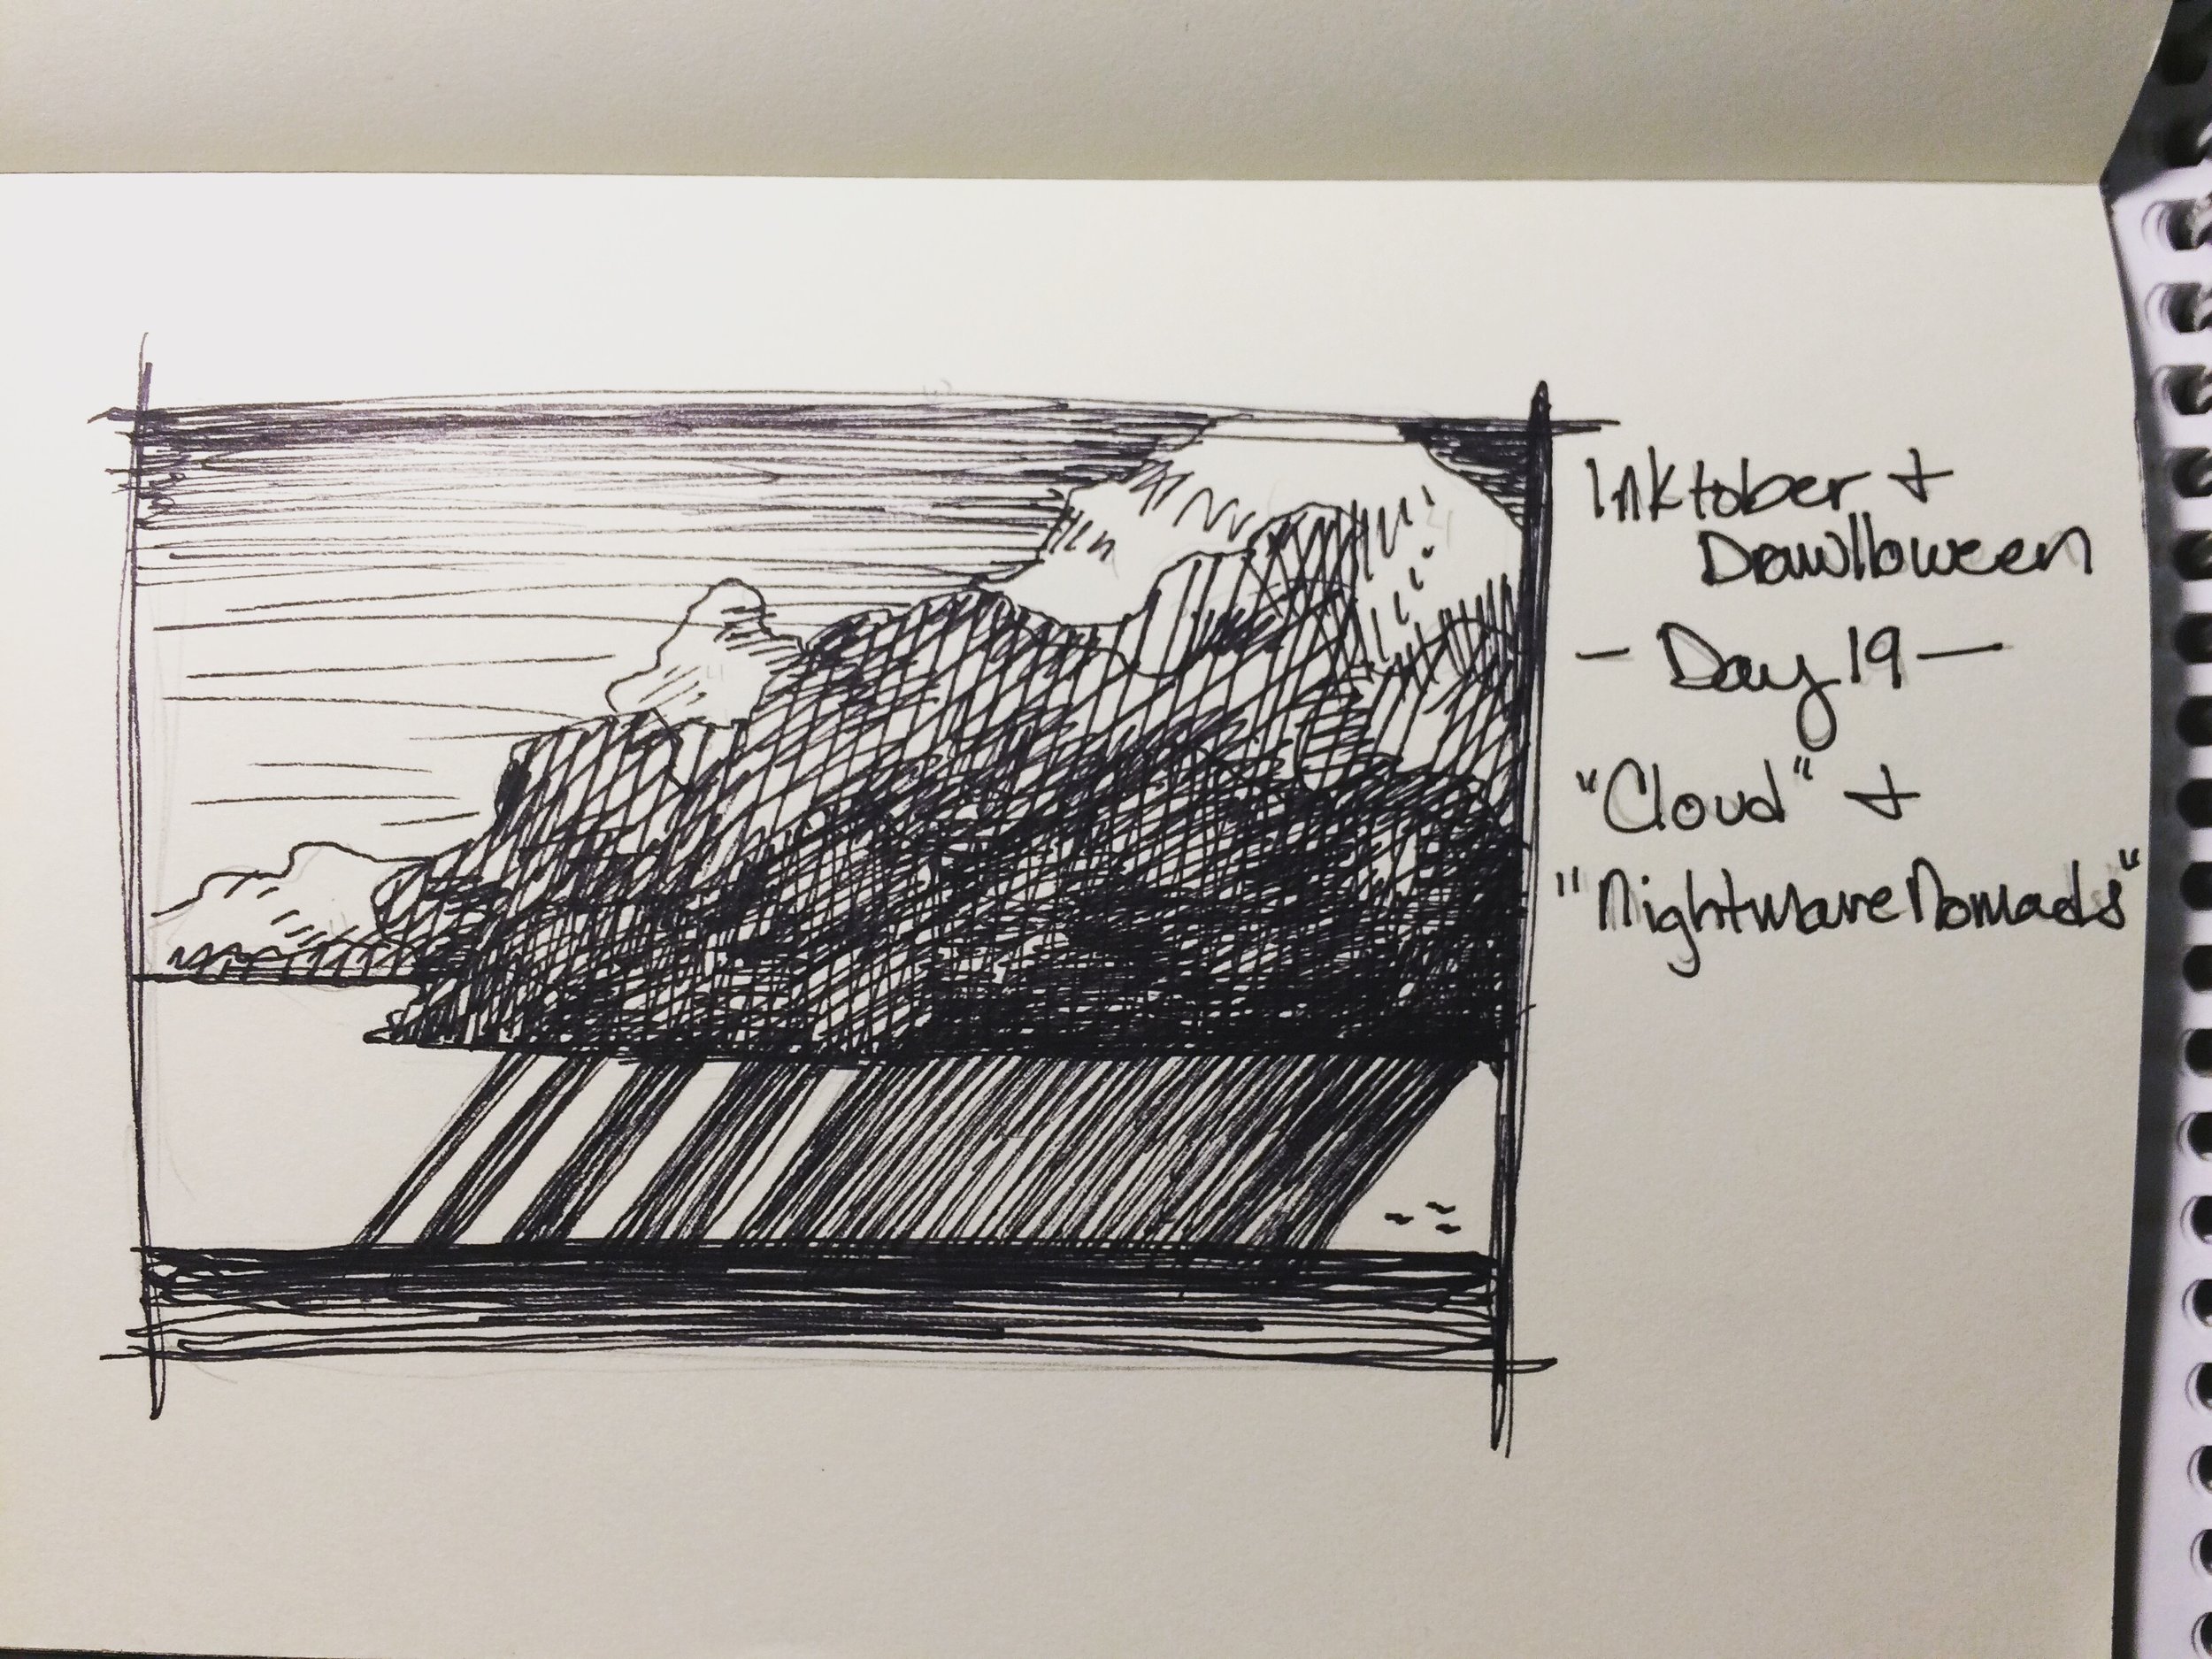 Inktober +
Drawlloween
- Day 19 -
"Cloud" +
"Nightmare Nomads"